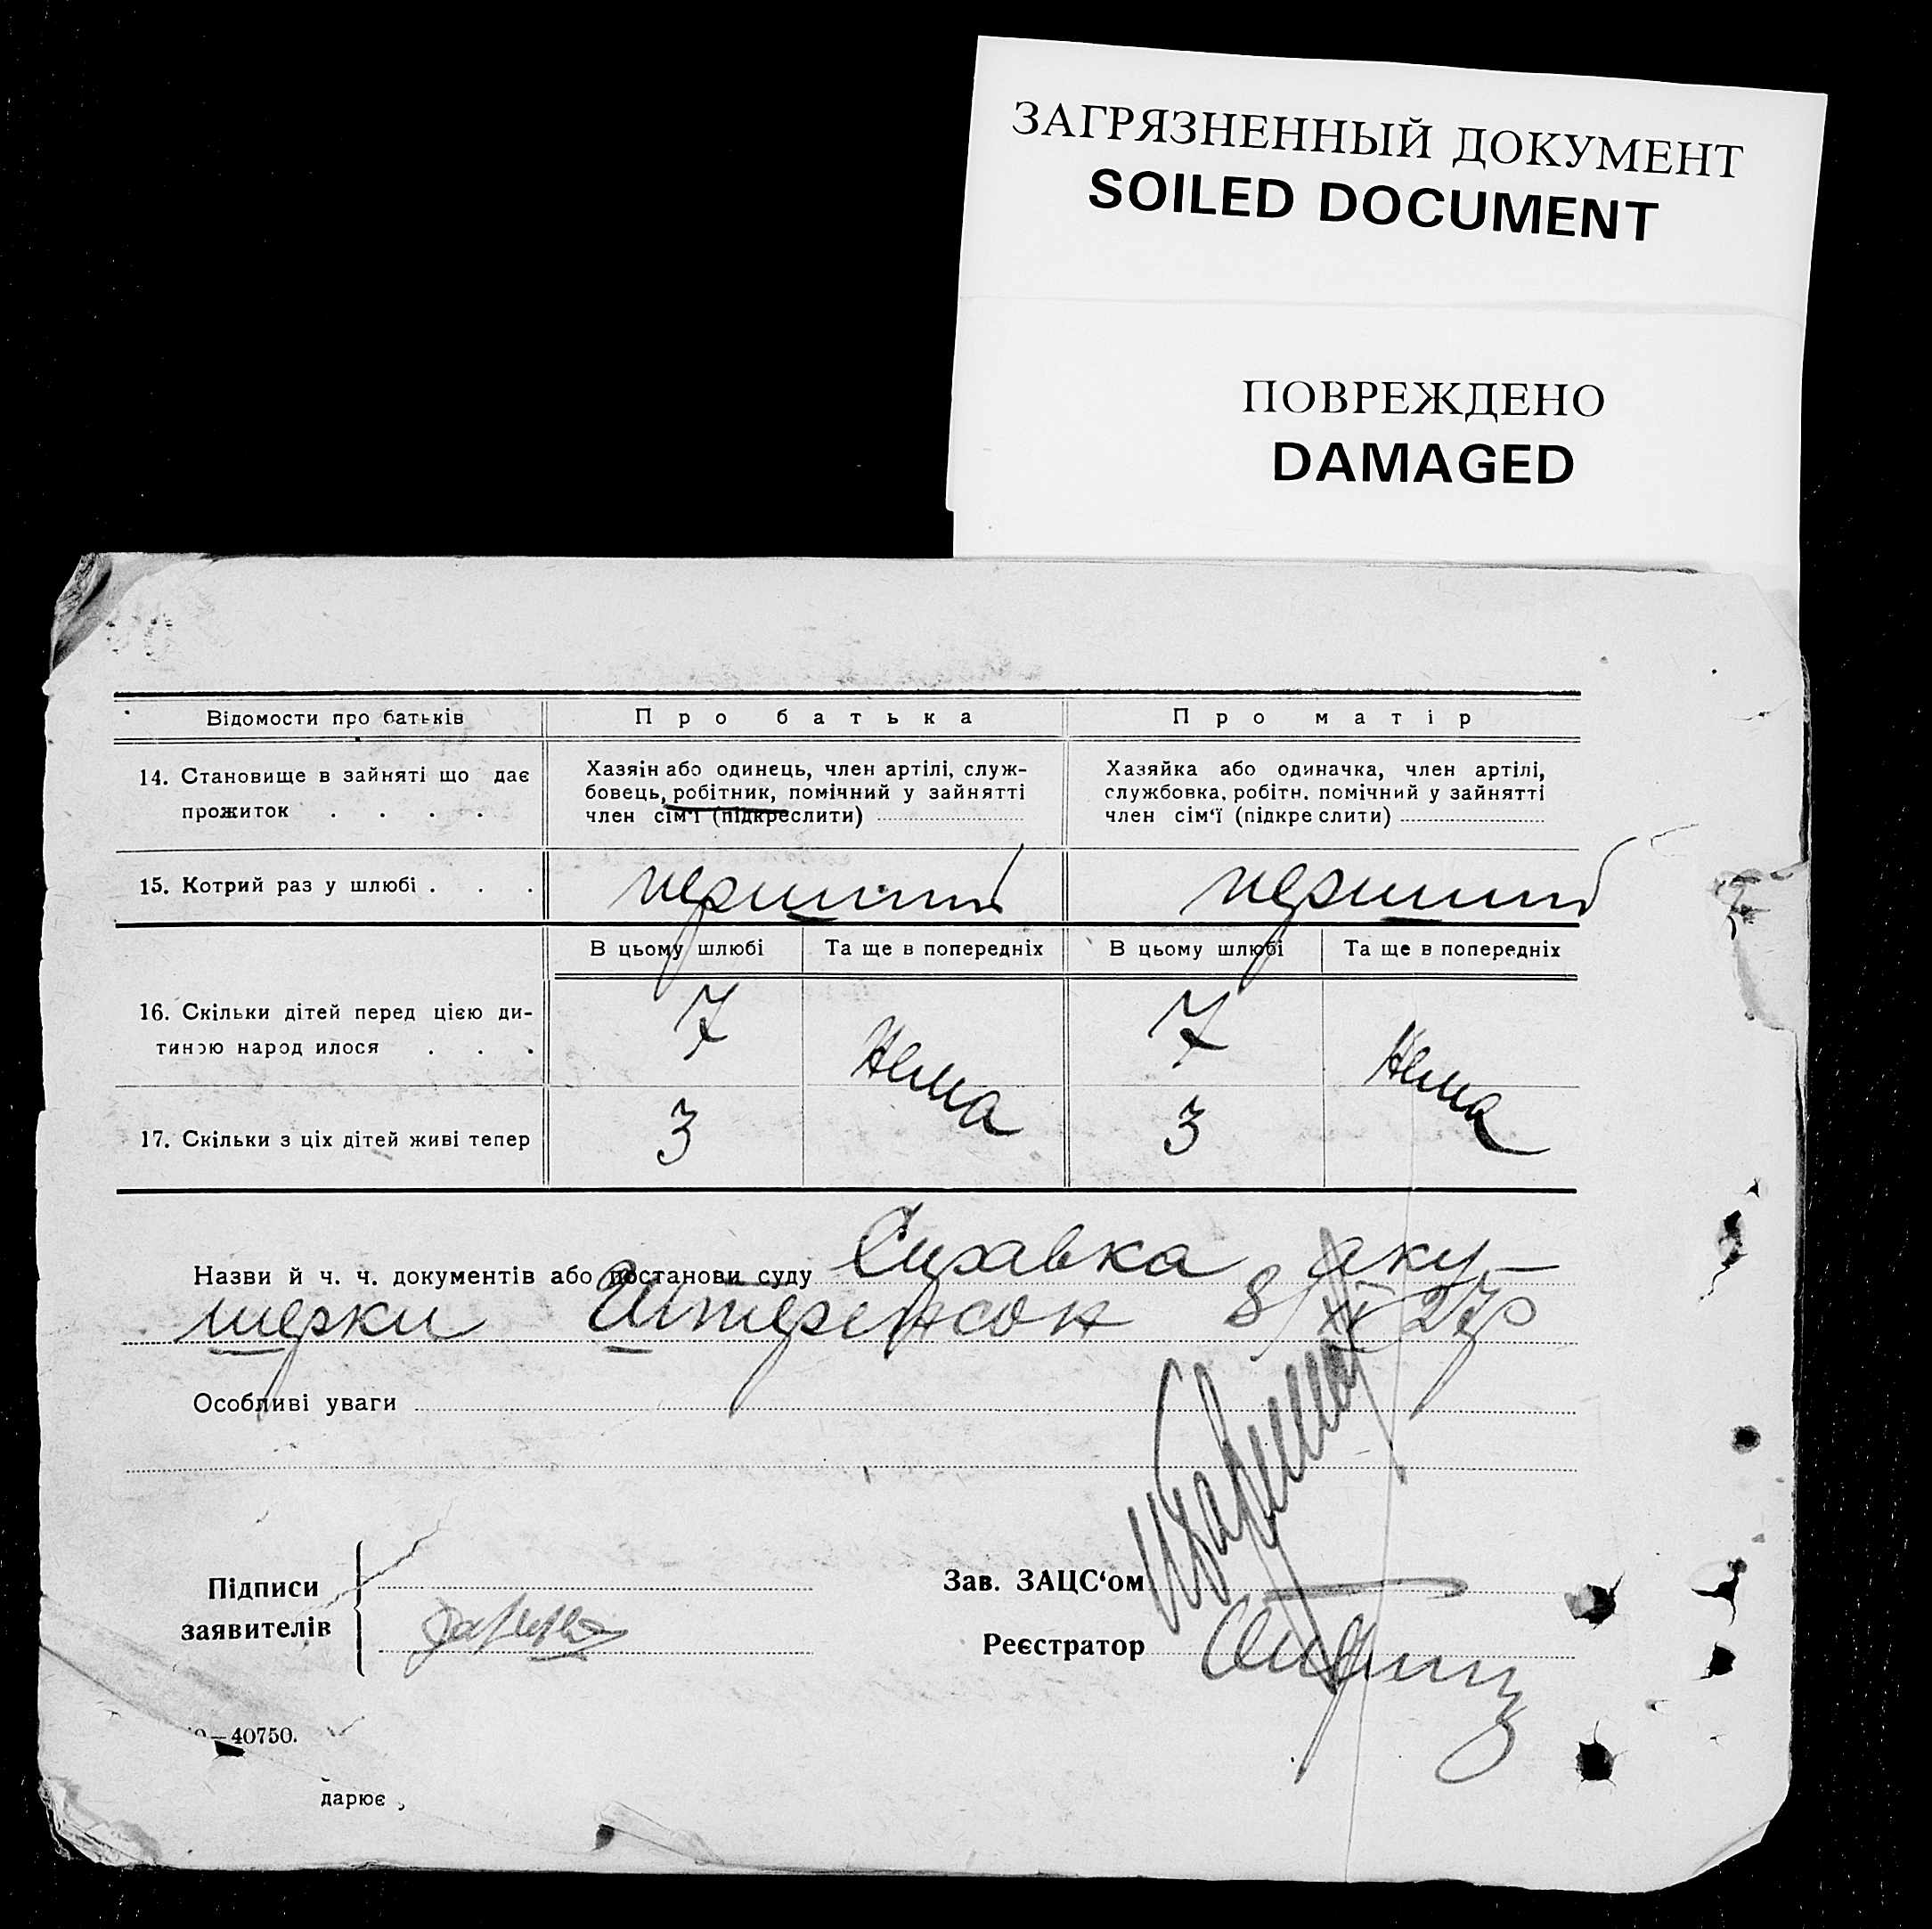 ЗАГРЯЗНЕННЫЙ ДОКУМЕНТ
SOILED DOCUMENT
ПОВРЕЖДЕНО
DAMAGED
Відомости про батьків
Про батька
Про матір
14. Становище в зайняті що дає
прожиток . . . .
Хазяін або одинець, член артілі, служ-
бовець, робітник, помічний у зайнятті
член сім'ї (підкреслити)
Хазяйка або одиначка, член артілі,
службовка, робітн. помічний у зайнятті
член сім'ї (підкреслити)
15. Котрий раз у шлюбі . . .
перший
перший
В цьому шлюбі
Та ще в попередніх
В цьому шлюбі
Та ще в попередніх
16. Скільки дітей перед цією ди-
тиною народилося . . .
7
Нема
7
Нема
17. Скільки з ціх дітей живі тепер
3
3
Назви й ч. ч. документів або постанови суду Справка аку-
шерки Штеренсон 8/XI 27р
Особливі уваги
Підписи
заявителів
Зав. ЗАЦС'ом
Реєстратор
—40750.
дарює